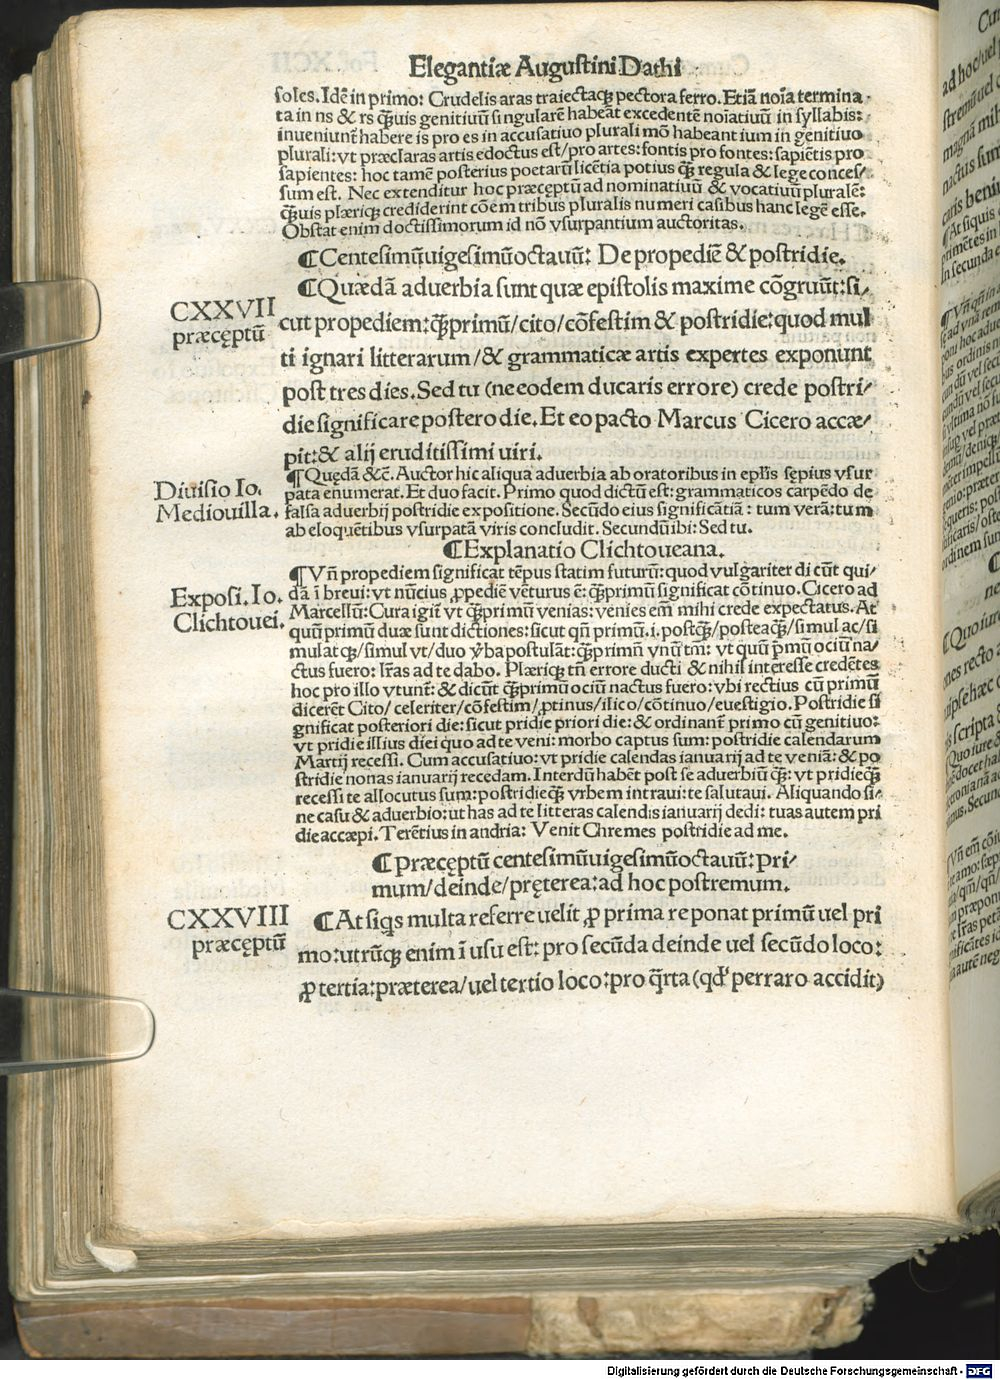 Elegantiæ Augustini Dathi
soles. Idē in primo: Crudelis aras traiectaqꝫ pectora ferro. Etiā noīa termina
ta in ns & rs qꝫuis genitiuū singularē habeāt excedentē noīatiuū in syllabis:
inueniunt̄ habere is pro es in accusatiuo plurali mō habeant ium in genitiuo
plurali: vt præclaras artis edoctus est/pro artes: fontis pro fontes: sapiētis pro
sapientes: hoc tamē posterius poetarū licētia potius qꝫ regula & lege conces/
sum est. Nec extenditur hoc præceptū ad nominatiuū & vocatiuū pluralē:
qꝫuis plæriqꝫ crediderint cōem tribus pluralis numeri casibus hanc legē esse.
Obstat enim doctissimorum id nō vsurpantium auctoritas.
¶Centesimūuigesimūoctauū: De propediē & postridie.
CXXVII
præceptū
¶Quædā aduerbia sunt quæ epistolis maxime cōgruūt: si/
cut propediem: qꝫprimū/cito/cōfestim & postridie: quod mul
ti ignari litterarum/& grammaticæ artis expertes exponunt
post tres dies. Sed tu (ne eodem ducaris errore) crede postri/
die significare postero die. Et eo pacto Marcus Cicero accæ/
pit: & alij eruditissimi uiri.
Diuisio Io.
Mediouilla.
¶Quędā &c̄. Auctor hic aliqua aduerbia ab oratoribus in ep̄lis sępius vsur
pata enumerat. Et duo facit. Primo quod dictū est: grammaticos carpēdo de
falsa aduerbij postridie expositione. Secūdo eius significātiā: tum verā: tum
ab eloquētibus vsurpatā viris concludit. Secundū ibi: Sed tu.
¶Explanatio Clichtoueana.
Exposi. Io.
Clichtouei.
¶Vn̄ propediem significat tēpus statim futurū: quod vulgariter dicūt qui/
dā ī breui: vt nūcius ꝓpediē vēturus ē: qꝫprimū significat cōtinuo. Cicero ad
Marcellū: Cura igiī vt qꝫprimū venias: venies em̄ mihi crede expectatus. At
quū primū duæ sunt dictiones: sicut qn̄ primū .i. postqꝫ/posteaqꝫ/simul ac/si
mulatqꝫ/simul vt/duo v̄ba postulāt: qꝫprimū vnū tm̄: vt quū p̄mū ociū na/
ctus fuero: lr̄as ad te dabo. Plæriqꝫ tn̄ errore ducti & nihil interesse credētes
hoc pro illo vtunt̄: & dicūt qꝫprimū ociū nactus fuero: vbi rectius cū primū
dicerēt Cito/ celeriter/cōfestim/ꝓtinus/ilico/cōtinuo/euestigio. Postridie si
gnificat posteriori die: sicut pridie priori die: & ordinant̄ primo cū genitiuo:
vt pridie illius diei quo ad te veni: morbo captus sum: postridie calendarum
Martij recessi. Cum accusatiuo: vt pridie calendas ianuarij ad te veniā: & po
stridie nonas ianuarij recedam. Interdū habēt post se aduerbiū qꝫ: vt pridieqꝫ
recessi te allocutus sum: postridieqꝫ vrbem intraui: te salutaui. Aliquando si/
ne casu & aduerbio: ut has ad te litteras calendis ianuarij dedi: tuas autem pri
die accæpi. Terētius in andria: Venit Chremes postridie ad me.
¶Præceptū centesimūuigesimūoctauū: Pri/
mum/deinde/pręterea: ad hoc postremum.
CXXVIII
præceptū
¶At siqs multa referre uelit ꝓ prima reponat primū uel pri
mo: utrūqꝫ enim ī usu est: pro secūda deinde uel secūdo loco:
ꝓ tertia: præterea/uel tertio loco: pro q̄rta (qd̓ perraro accidit)
Digitalisierung gefördert durch die Deutsche Forschungsgemeinschaft - DFG